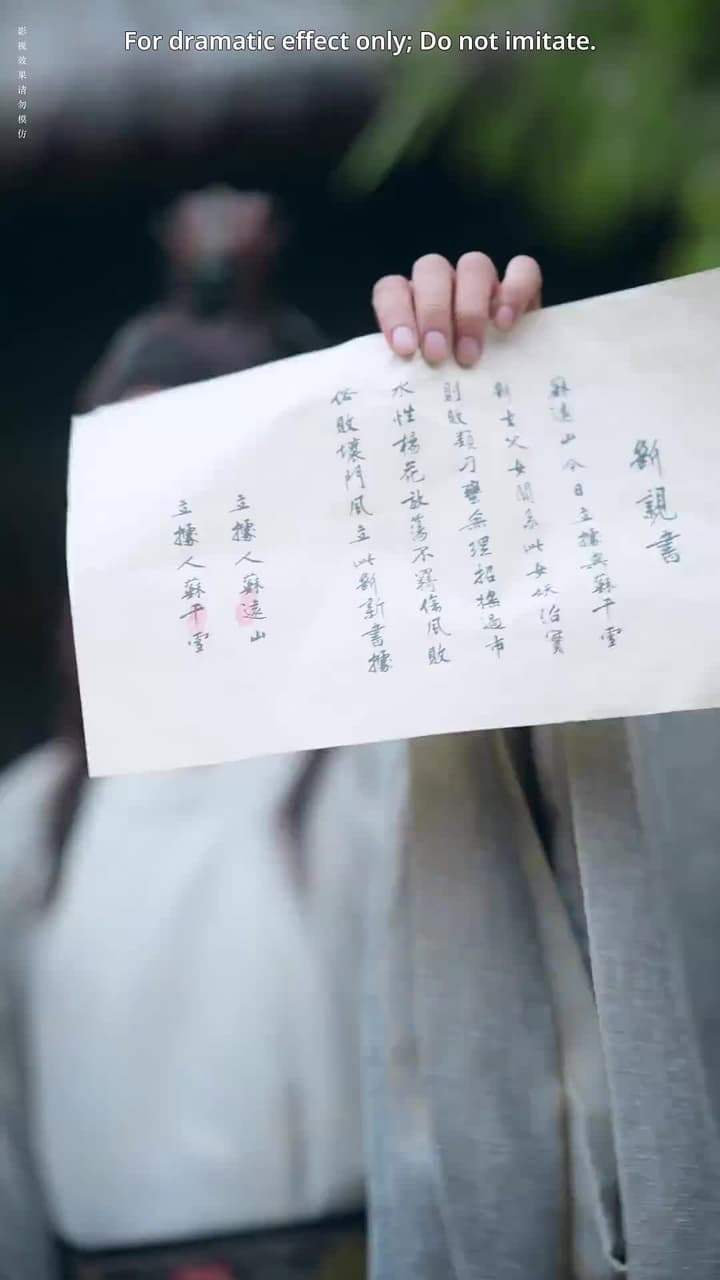 For dramatic effect only; Do not imitate.
影视效果请勿模仿
斷親書
蘇遠山今日立據與蘇千雪
斷去父女関系此女妖治實
則敗類刁蠻無理招搖過市
水性楊花放蕩不羈傷風敗
俗敗壞門風立此斷新書據
立據人蘇遠山
立據人蘇千雪